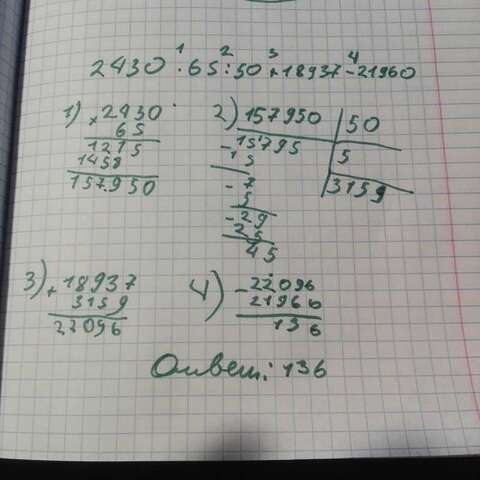 1 2 3 4
2430 · 65 : 50 + 18937 - 21960
1) × 2430
65
1215
1458
157950
2) 157950 | 50
- 15795 | 5
15 | 3159
- 7
5
- 29
25
45
3) + 18937
3159
22096
4) - 22096
21960
136
Ответ: 136